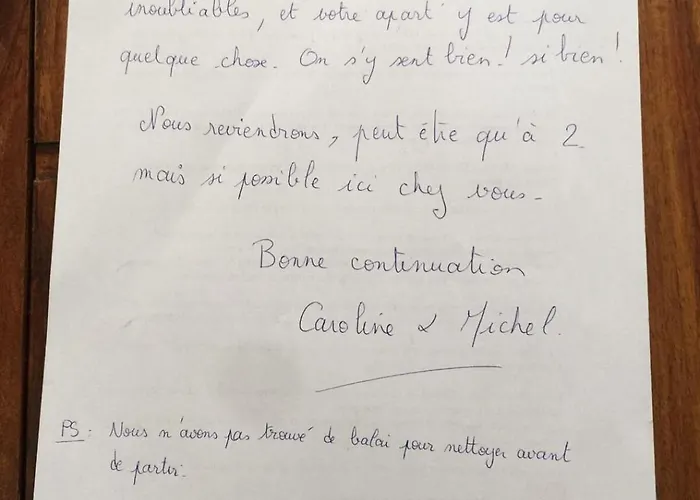 inoubliables, et votre apart' y est pour
quelque chose. On s'y sent bien! si bien!
Nous reviendrons, peut être qu'à 2
mais si possible ici chez vous -
Bonne continuation
Caroline & Michel.
PS : Nous n'avons pas trouvé de balai pour nettoyer avant
de partir.